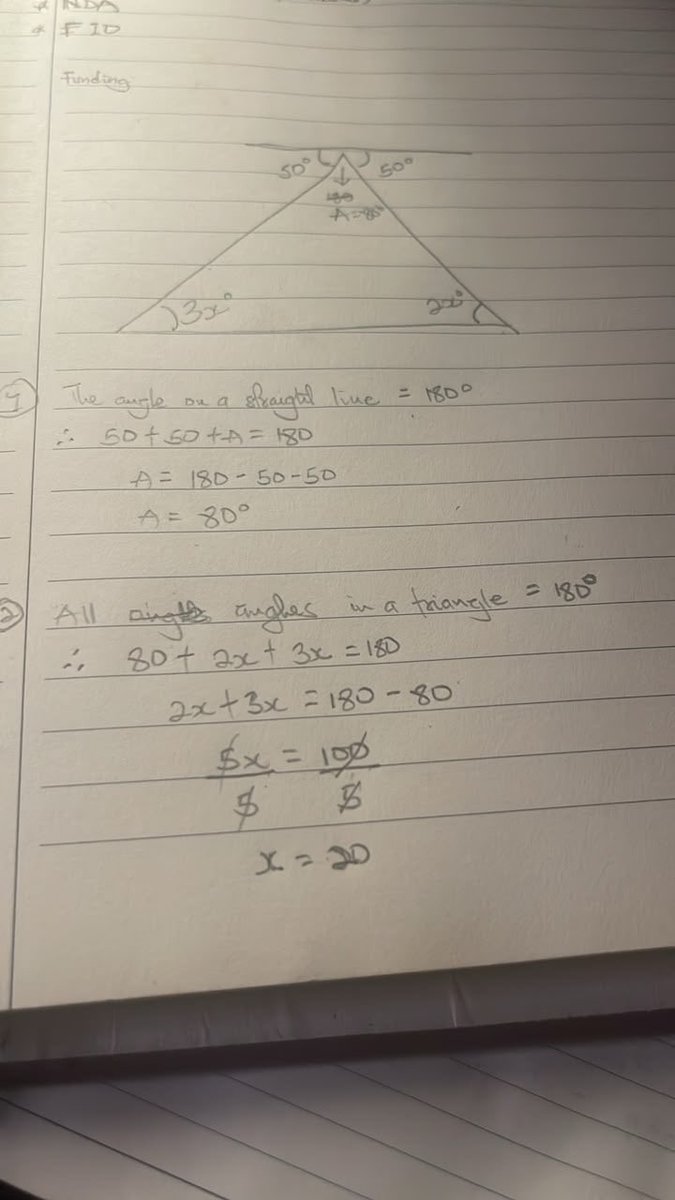 * NDA
* FID
Funding
50° 50°
A=80°
3x° 2x°
1 The angle on a straight line = 180°
∴ 50+50+A = 180
A = 180-50-50
A = 80°
2 All angles in a triangle = 180°
∴ 80+ 2x+ 3x =180
2x+3x = 180-80
5x = 100
5 5
x = 20